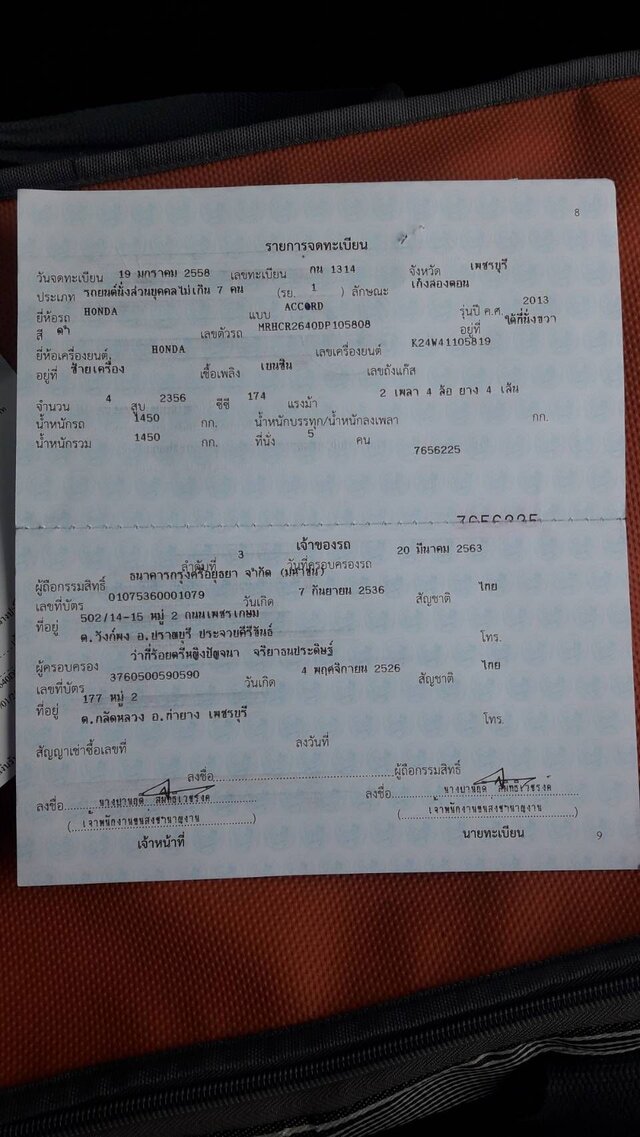 8
รายการจดทะเบียน
วันจดทะเบียน 19 มกราคม 2558 เลขทะเบียน กน 1314 จังหวัด เพชรบุรี
ประเภท รถยนต์นั่งส่วนบุคคลไม่เกิน 7 คน (รย. 1 ) ลักษณะ เก๋งสองตอน
ยี่ห้อรถ HONDA แบบ ACCORD รุ่นปี ค.ศ. 2013
สี ดำ เลขตัวรถ MRHCR2640DP105808 อยู่ที่ ใต้ที่นั่งขวา
ยี่ห้อเครื่องยนต์ HONDA เลขเครื่องยนต์ K24W41105819
อยู่ที่ ซ้ายเครื่อง เชื้อเพลิง เบนซิน เลขถังแก๊ส
จำนวน 4 สูบ 2356 ซีซี 174 แรงม้า 2 เพลา 4 ล้อ ยาง 4 เส้น
น้ำหนักรถ 1450 กก. น้ำหนักบรรทุก/น้ำหนักลงเพลา กก.
น้ำหนักรวม 1450 กก. ที่นั่ง 5 คน
7656225
เจ้าของรถ
ลำดับที่ 3 วันที่ครอบครองรถ 20 มีนาคม 2563
ผู้ถือกรรมสิทธิ์ ธนาคารกรุงศรีอยุธยา จำกัด (มหาชน)
เลขที่บัตร 01075360001079 วันเกิด 7 กันยายน 2536 สัญชาติ ไทย
ที่อยู่ 502/14-15 หมู่ 2 ถนนเพชรเกษม
ต.วังก์พง อ.ปราณบุรี ประจวบคีรีขันธ์ โทร.
ผู้ครอบครอง ว่าที่ร้อยตรีหญิงปัญจนา จริยาธนประดิษฐ์
เลขที่บัตร 3760500590590 วันเกิด 4 พฤศจิกายน 2526 สัญชาติ ไทย
ที่อยู่ 177 หมู่ 2
ต.กลัดหลวง อ.ท่ายาง เพชรบุรี โทร.
สัญญาเช่าซื้อเลขที่ ลงวันที่
ลงชื่อ ผู้ถือกรรมสิทธิ์
ลงชื่อ ลงชื่อ
(เจ้าพนักงานขนส่งชำนาญงาน) (เจ้าพนักงานขนส่งชำนาญงาน)
เจ้าหน้าที่ นายทะเบียน
9